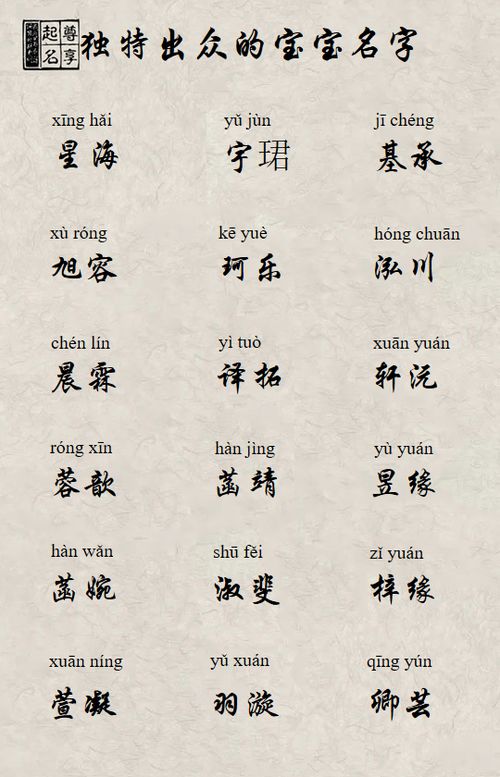 尊享起名
独特出众的宝宝名字
xīng hǎi yǔ jùn jī chéng
星海 宇珺 基承
xù róng kē yuè hóng chuān
旭容 珂乐 泓川
chén lín yì tuò xuān yuán
晨霖 译拓 轩沅
róng xīn hàn jìng yù yuán
蓉歆 菡靖 昱缘
hàn wǎn shū fěi zǐ yuán
菡婉 淑斐 梓缘
xuān níng yǔ xuán qīng yún
萱凝 羽漩 卿芸